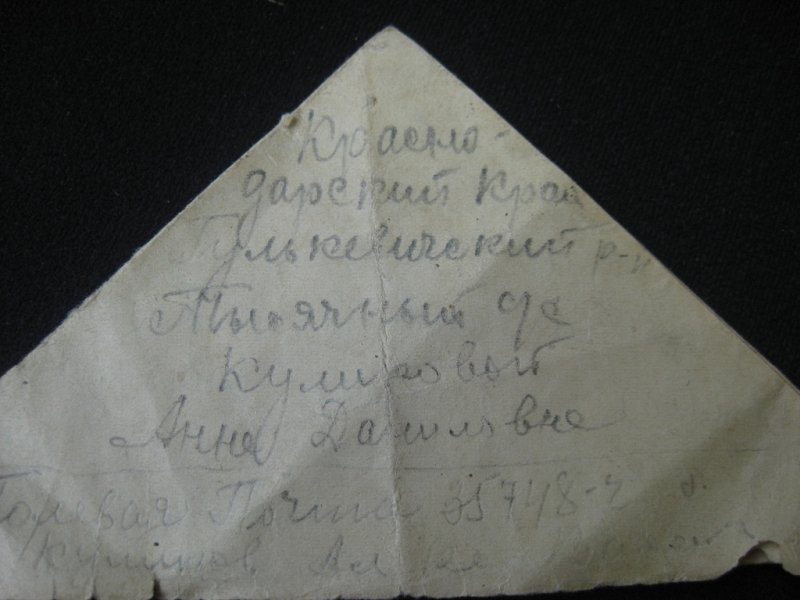 Красно-
дарский край
Гулькевичский р-н
Тысячный
Куликовой
Анне Даниловне
Полевая Почта 35748-ч
Куликов